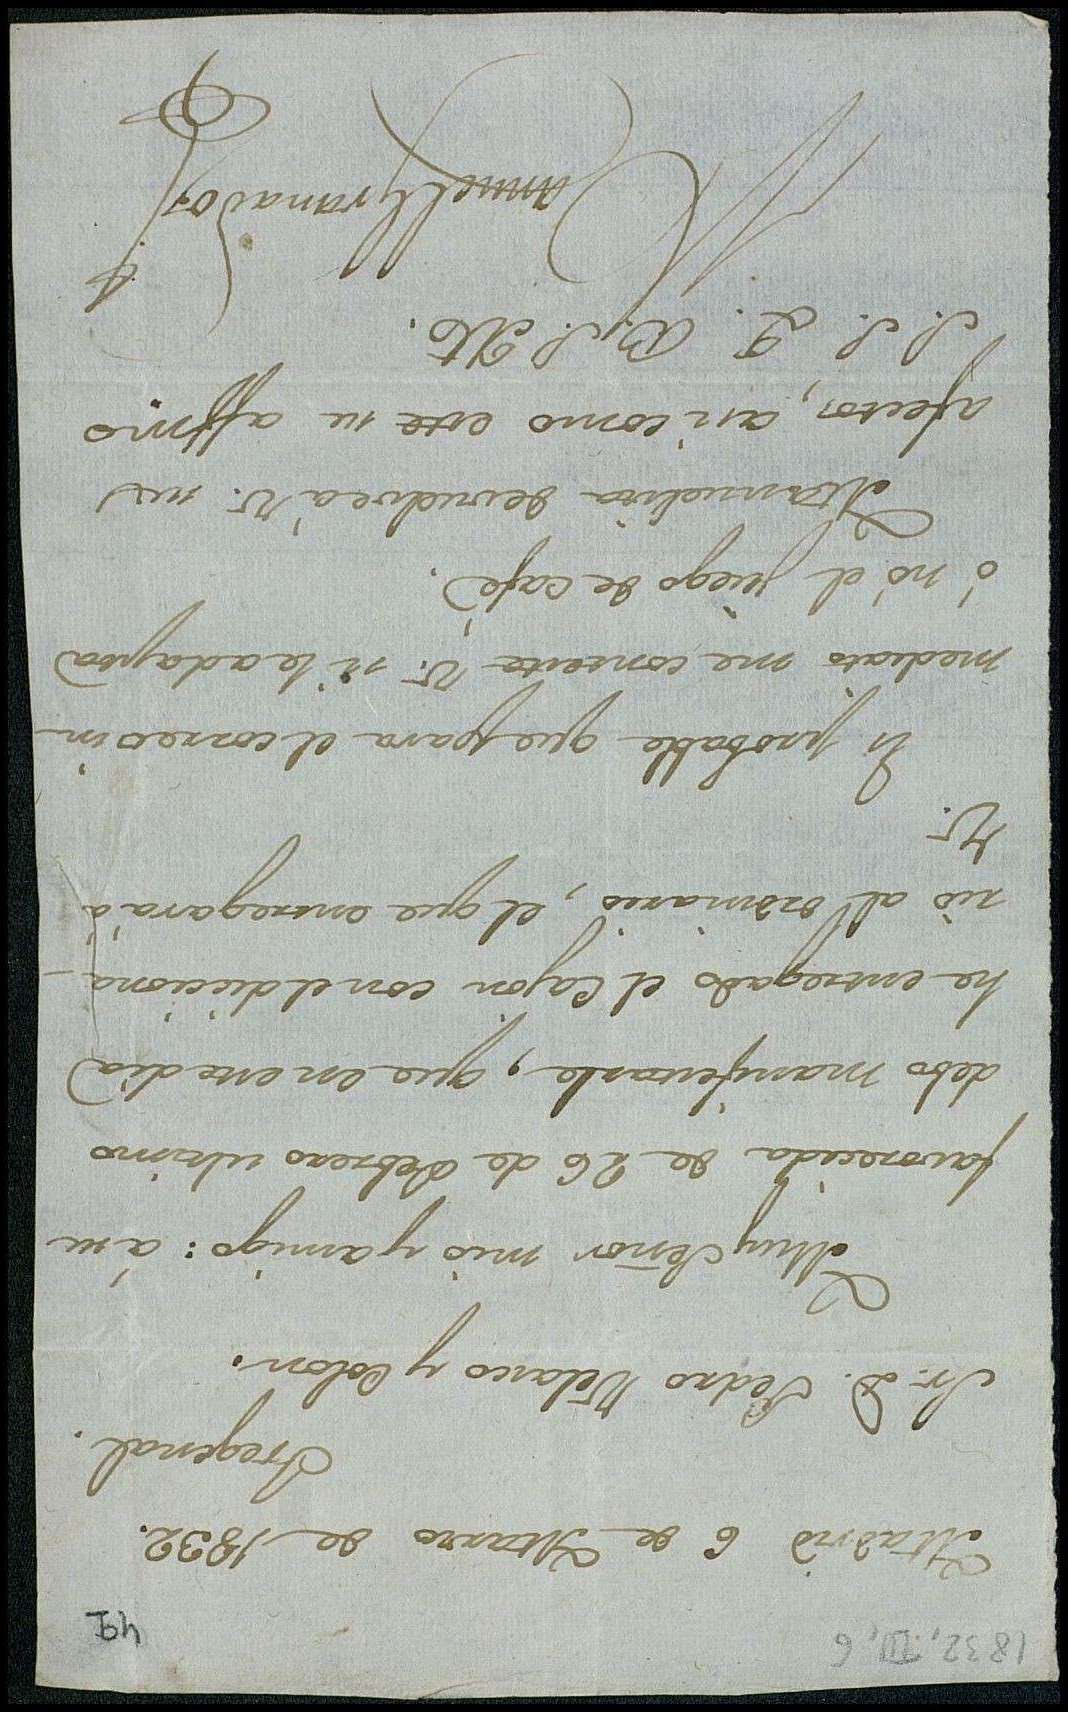 1832, III, 6
49I
Madrid 6 de Marzo de 1832.
Fregenal.
Sr. D. Pedro Velasco y Colon.
Muy Señor mio y amigo: á su
favorecida de 26 de Febrero ultimo
debo manifestarle, que en este dia
he entregado el Cajon con el dicciona-
rio al ordinario, el que entregará á
V.
Es probable que para el correo in-
mediato me conteste V. si le adapta
ó nó el juego de café.
Mamelita devuelve á V. sus
afectos, asi como este su affmo
S. S. Q. B. S. M.
Manuel Granados